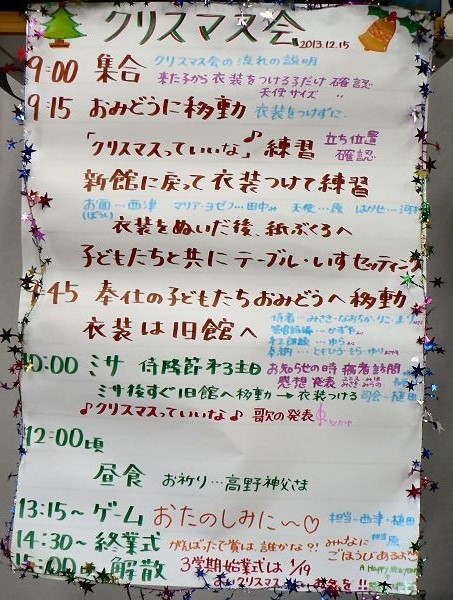 クリスマス会 2013.12.15
9:00 集合 クリスマス会の流れの説明
来た子から衣装をつけるろだけ確認
天使サイズ 〃
9:15 おみどうに移動 衣装をつけずに
「クリスマスっていいな」♪練習 立ち位置
確認
新館に戻って衣装つけて練習
お面…西津 マリア・ヨゼフ…田中 天使…原 はかせ…河
(ぼうし)
衣装をぬいだ後、紙ぶくろへ
子どもたちと共にテーブル・いすセッティング
:45 奉仕の子どもたちおみどうへ移動
衣装は旧館へ
侍者…みさき・なおちか・りこ・
…かずや
…ゆら
奉納…ともひろ・そら・ゆり
10:00 ミサ 待降節第3主日 お知らせの時 病者訪問
感想発表
ミサ後すぐ旧館へ移動→衣装つける 司会…植田
♪クリスマスっていいな♪ 歌の発表
12:00頃
昼食 お祈り…高野神父さま
13:15〜 ゲーム おたのしみに〜♡ 担当…西津・植田
14:30〜 終業式 がんばったで賞は、誰かな?! みんなに 担当 原
ごほうびあるよ
A Happy New Year
15:00 解散 3学期始業式は 1/19
クリスマス